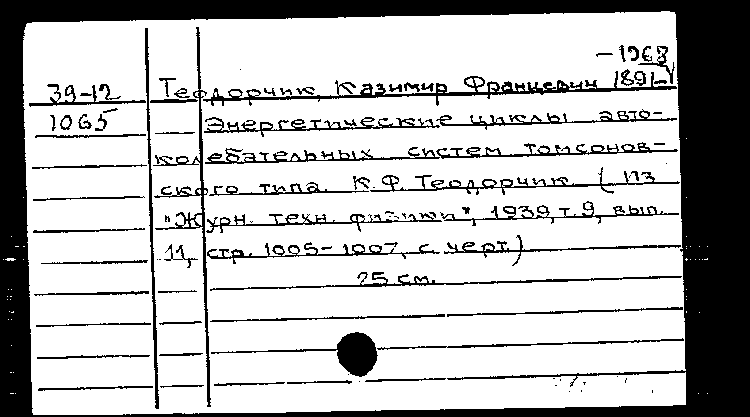 -1968
39-12 Теодорчик, Казимир Францевич 1891-
1065 Энергетические циклы авто-
колебательных систем томсонов-
ского типа. К.Ф. Теодорчик. (Из
"Журн. техн. физики", 1939, т. 9, вып.
11, стр. 1005-1007, с черт.)
25 см.